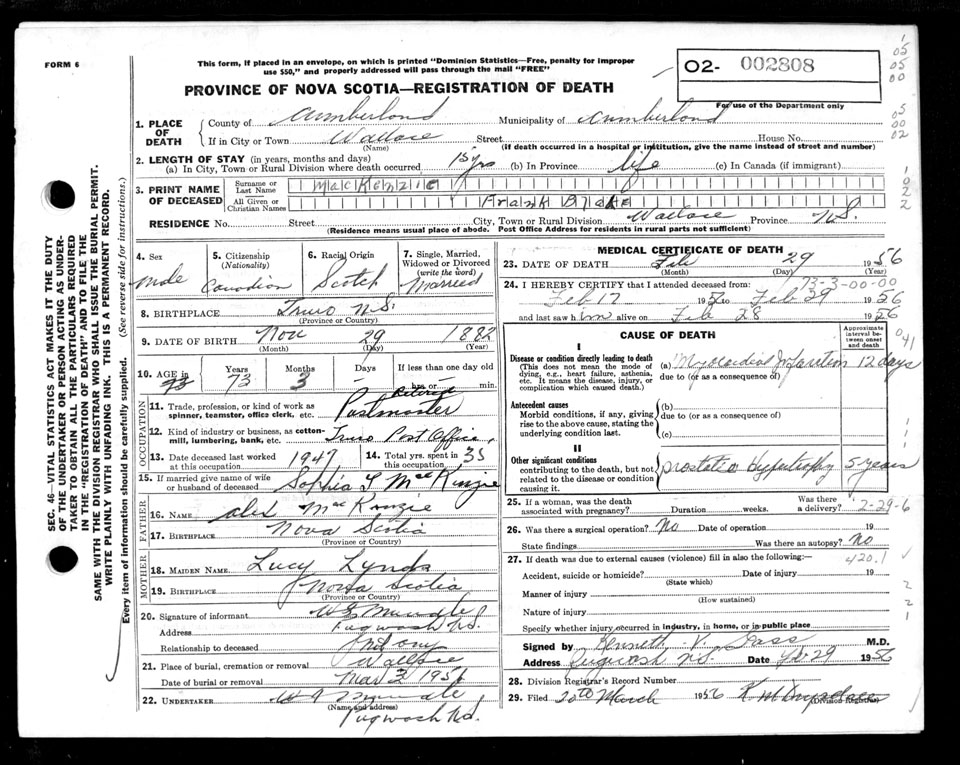 FORM 6
This form, if placed in an envelope, on which is printed "Dominion Statistics—Free, penalty for improper
use $50," and properly addressed will pass through the mail "FREE"
O2- 002808
For use of the Department only
PROVINCE OF NOVA SCOTIA—REGISTRATION OF DEATH
1. PLACE OF DEATH
County of Cumberland Municipality of Cumberland
If in City or Town Wallace Street House No.
(Name) (If death occurred in a hospital or institution, give the name instead of street and number)
2. LENGTH OF STAY (in years, months and days)
(a) In City, Town or Rural Division where death occurred 15 yrs (b) In Province life (c) In Canada (if immigrant)
3. PRINT NAME OF DECEASED
Surname or Last Name MacKenzie
All Given or Christian Names Frank Blake
RESIDENCE No. Street City, Town or Rural Division Wallace Province N.S.
(Residence means usual place of abode. Post Office Address for residents in rural parts not sufficient)
4. Sex Male
5. Citizenship (Nationality) Canadian
6. Racial Origin Scotch
7. Single, Married, Widowed or Divorced (write the word) Married
8. BIRTHPLACE Truro N.S.
(Province or Country)
9. DATE OF BIRTH Nov 29 1882
(Month) (Day) (Year)
10. AGE in Years 73 Months 3 Days - If less than one day
hrs. or min.
OCCUPATION
11. Trade, profession, or kind of work as spinner, teamster, office clerk, etc. Retired Postmaster
12. Kind of industry or business, as cotton-mill, lumbering, bank, etc. Truro Post Office,
13. Date deceased last worked at this occupation 1947
14. Total yrs. spent in this occupation 35
15. If married give name of wife or husband of deceased Sophia L MacKenzie
FATHER
16. NAME Alex MacKenzie
17. BIRTHPLACE Nova Scotia
(Province or Country)
MOTHER
18. MAIDEN NAME Lucy Lynds
19. BIRTHPLACE Nova Scotia
(Province or Country)
20. Signature of informant
Address Pugwash N.S.
Relationship to deceased
21. Place of burial, cremation or removal Wallace
Date of burial or removal Mar 3 1956
22. UNDERTAKER
(Name and address)
Pugwash N.S.
MEDICAL CERTIFICATE OF DEATH
23. DATE OF DEATH Feb 29 1956
(Month) (Day) (Year)
73-3-00-00
24. I HEREBY CERTIFY that I attended deceased from:
Feb 17 to Feb 29 1956
and last saw him alive on Feb 28 1956
CAUSE OF DEATH
Approximate interval between onset and death
I
Disease or condition directly leading to death
(This does not mean the mode of dying, e.g., heart failure, asthenia, etc. It means the disease, injury, or complication which caused death.)
(a) Myocardial Infarction 12 days
due to (or as a consequence of)
Antecedent causes
Morbid conditions, if any, giving rise to the above cause, stating the underlying condition last.
(b)
due to (or as a consequence of)
(c)
II
Other significant conditions
contributing to the death, but not related to the disease or condition causing it.
prostatic Hypertrophy 5 years
25. If a woman, was the death associated with pregnancy? Duration weeks. Was there a delivery?
2-29-6
26. Was there a surgical operation? No Date of operation 19
State findings Was there an autopsy? No
27. If death was due to external causes (violence) fill in also the following:— 420.1
Accident, suicide or homicide? Date of injury 19
(State which)
Manner of injury
(How sustained)
Nature of injury
Specify whether injury occurred in industry, in home, or in public place
Signed by Kenneth V. Gass M.D.
Address Pugwash, N.S. Date Feb 29 1956
28. Division Registrar's Record Number
29. Filed 20th March 1956
(Division Registrar)
SEC. 46—VITAL STATISTICS ACT MAKES IT THE DUTY
OF THE UNDERTAKER OR PERSON ACTING AS UNDER-
TAKER TO OBTAIN ALL THE PARTICULARS REQUIRED
IN THE "REGISTRATION OF DEATH" AND TO FILE THE
SAME WITH THE DIVISION REGISTRAR WHO SHALL ISSUE THE BURIAL PERMIT.
WRITE PLAINLY WITH UNFADING INK. THIS IS A PERMANENT RECORD.
Every item of information should be carefully supplied. (See reverse side for instructions.)